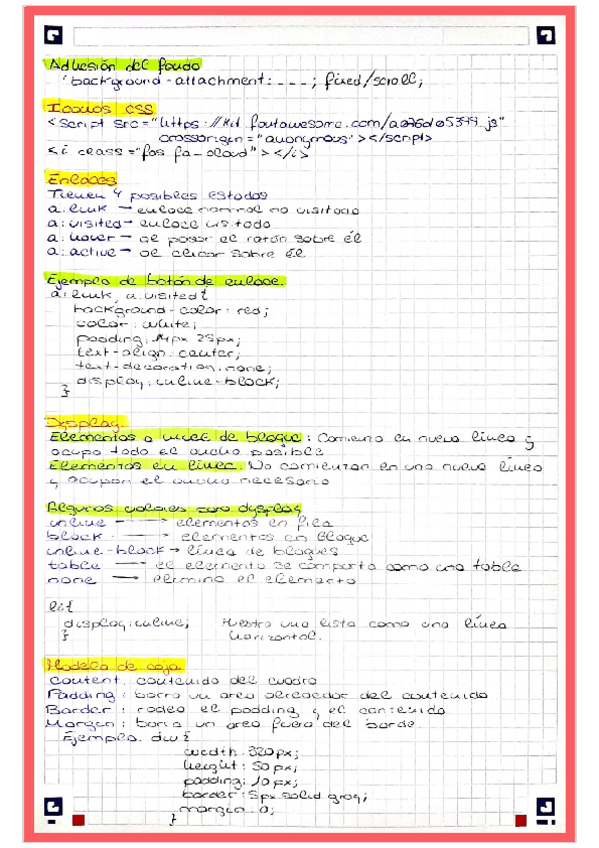 Adhesión del fondo
background-attachment: _ _ _ ; fixed/scroll;
Iconos CSS
<Script src="https://kit.fontawesome.com/
crossorigin="anonymous"></script>
<i class="fas fa-cloud"></i>
Enlaces
Tienen 4 posibles estados
a:link → enlace normal no visitado
a:visited → enlace visitado
a:hover → al pasar el ratón sobre él
a:active → al clicar sobre él
Ejemplo de botón de enlace.
a:link, a:visited{
background-color: red;
color: white;
padding: 14px 25px;
text-align: center;
text-decoration: none;
display: inline-block;
}
Display.
Elementos a nivel de bloque: Comienza en nueva línea y
ocupa todo el ancho posible
Elementos en línea. No comienzan en una nueva línea
y ocupan el ancho necesario
Algunos valores para display
inline → elementos en fila
block → elementos en bloque
inline-block → línea de bloques
table → el elemento se comporta como una table
none → elimina el elemento
li{
display: inline; Muestra una lista como una línea
} horizontal.
Modelo de caja
Content, contenido del cuadro
Padding: borra un area alrededor del contenido
Border: rodea el padding y el contenido
Margin: borra un area fuera del borde.
Ejemplo. div{
width: 320px;
height: 50px;
padding: 10px;
border: 5px solid gray;
margin: 0;
}